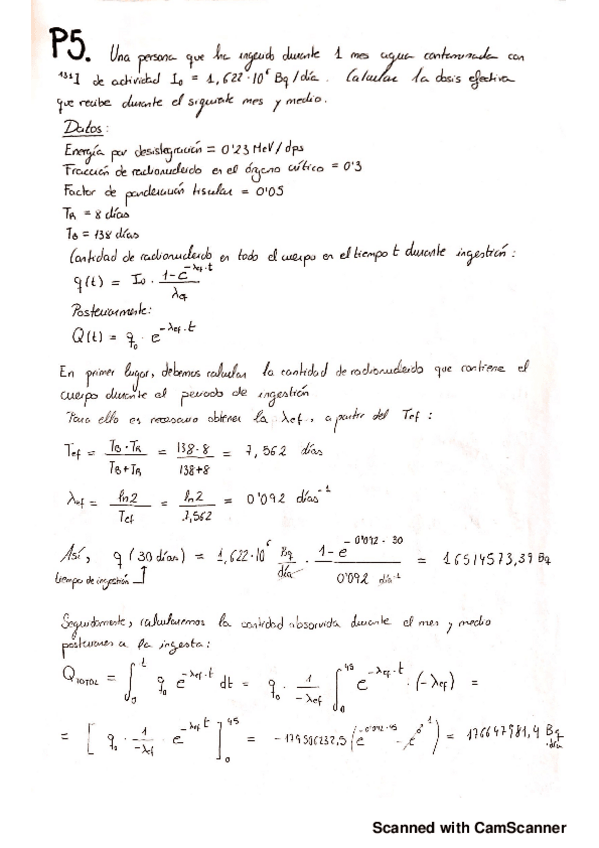 P5. Una persona que ha ingerido durante 1 mes agua contaminada con
¹³¹I de actividad I₀ = 1,622·10⁶ Bq/día. Calcular la dosis efectiva
que recibe durante el siguiente mes y medio.
Datos:
Energía por desintegración = 0'23 MeV/dps
Fracción de radionucleido en el órgano crítico = 0'3
Factor de ponderación tisular = 0'05
T_R = 8 días
T_B = 138 días
Cantidad de radionucleido en todo el cuerpo en el tiempo t durante ingestión:
q(t) = I₀ · (1-e^(-λef·t))/λef
Posteriormente:
Q(t) = q₀ · e^(-λef·t)
En primer lugar, debemos calcular la cantidad de radionucleido que contiene el
cuerpo durante el periodo de ingestión
Para ello es necesario obtener la λef, a partir del Tef:
Tef = (T_B · T_R)/(T_B + T_R) = (138·8)/(138+8) = 7,562 días
λef = ln2/Tef = ln2/7,562 = 0'092 días⁻¹
Así, q(30 días) = 1,622·10⁶ Bq/día · (1-e^(-0'092·30))/(0'092 día⁻¹) = 16514573,39 Bq
tiempo de ingestión
Seguidamente, calcularemos la cantidad absorvida durante el mes y medio
posteriores a la ingesta:
Q_TOTAL = ∫₀^t q₀ e^(-λef·t) dt = q₀ · 1/(-λef) ∫₀^45 e^(-λef·t) · (-λef) =
= [q₀ · 1/(-λef) · e^(-λef t)]₀^45 = -179506232,5 (e^(-0'092·45) - e^0) = 176647981,4 Bq·día
Scanned with CamScanner